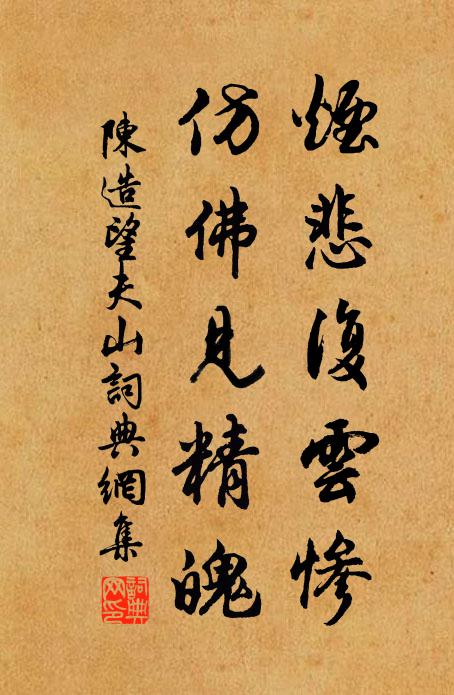 煙悲復雲慘
仿佛見精魄
陳造望夫山詞典網集
詞典网印